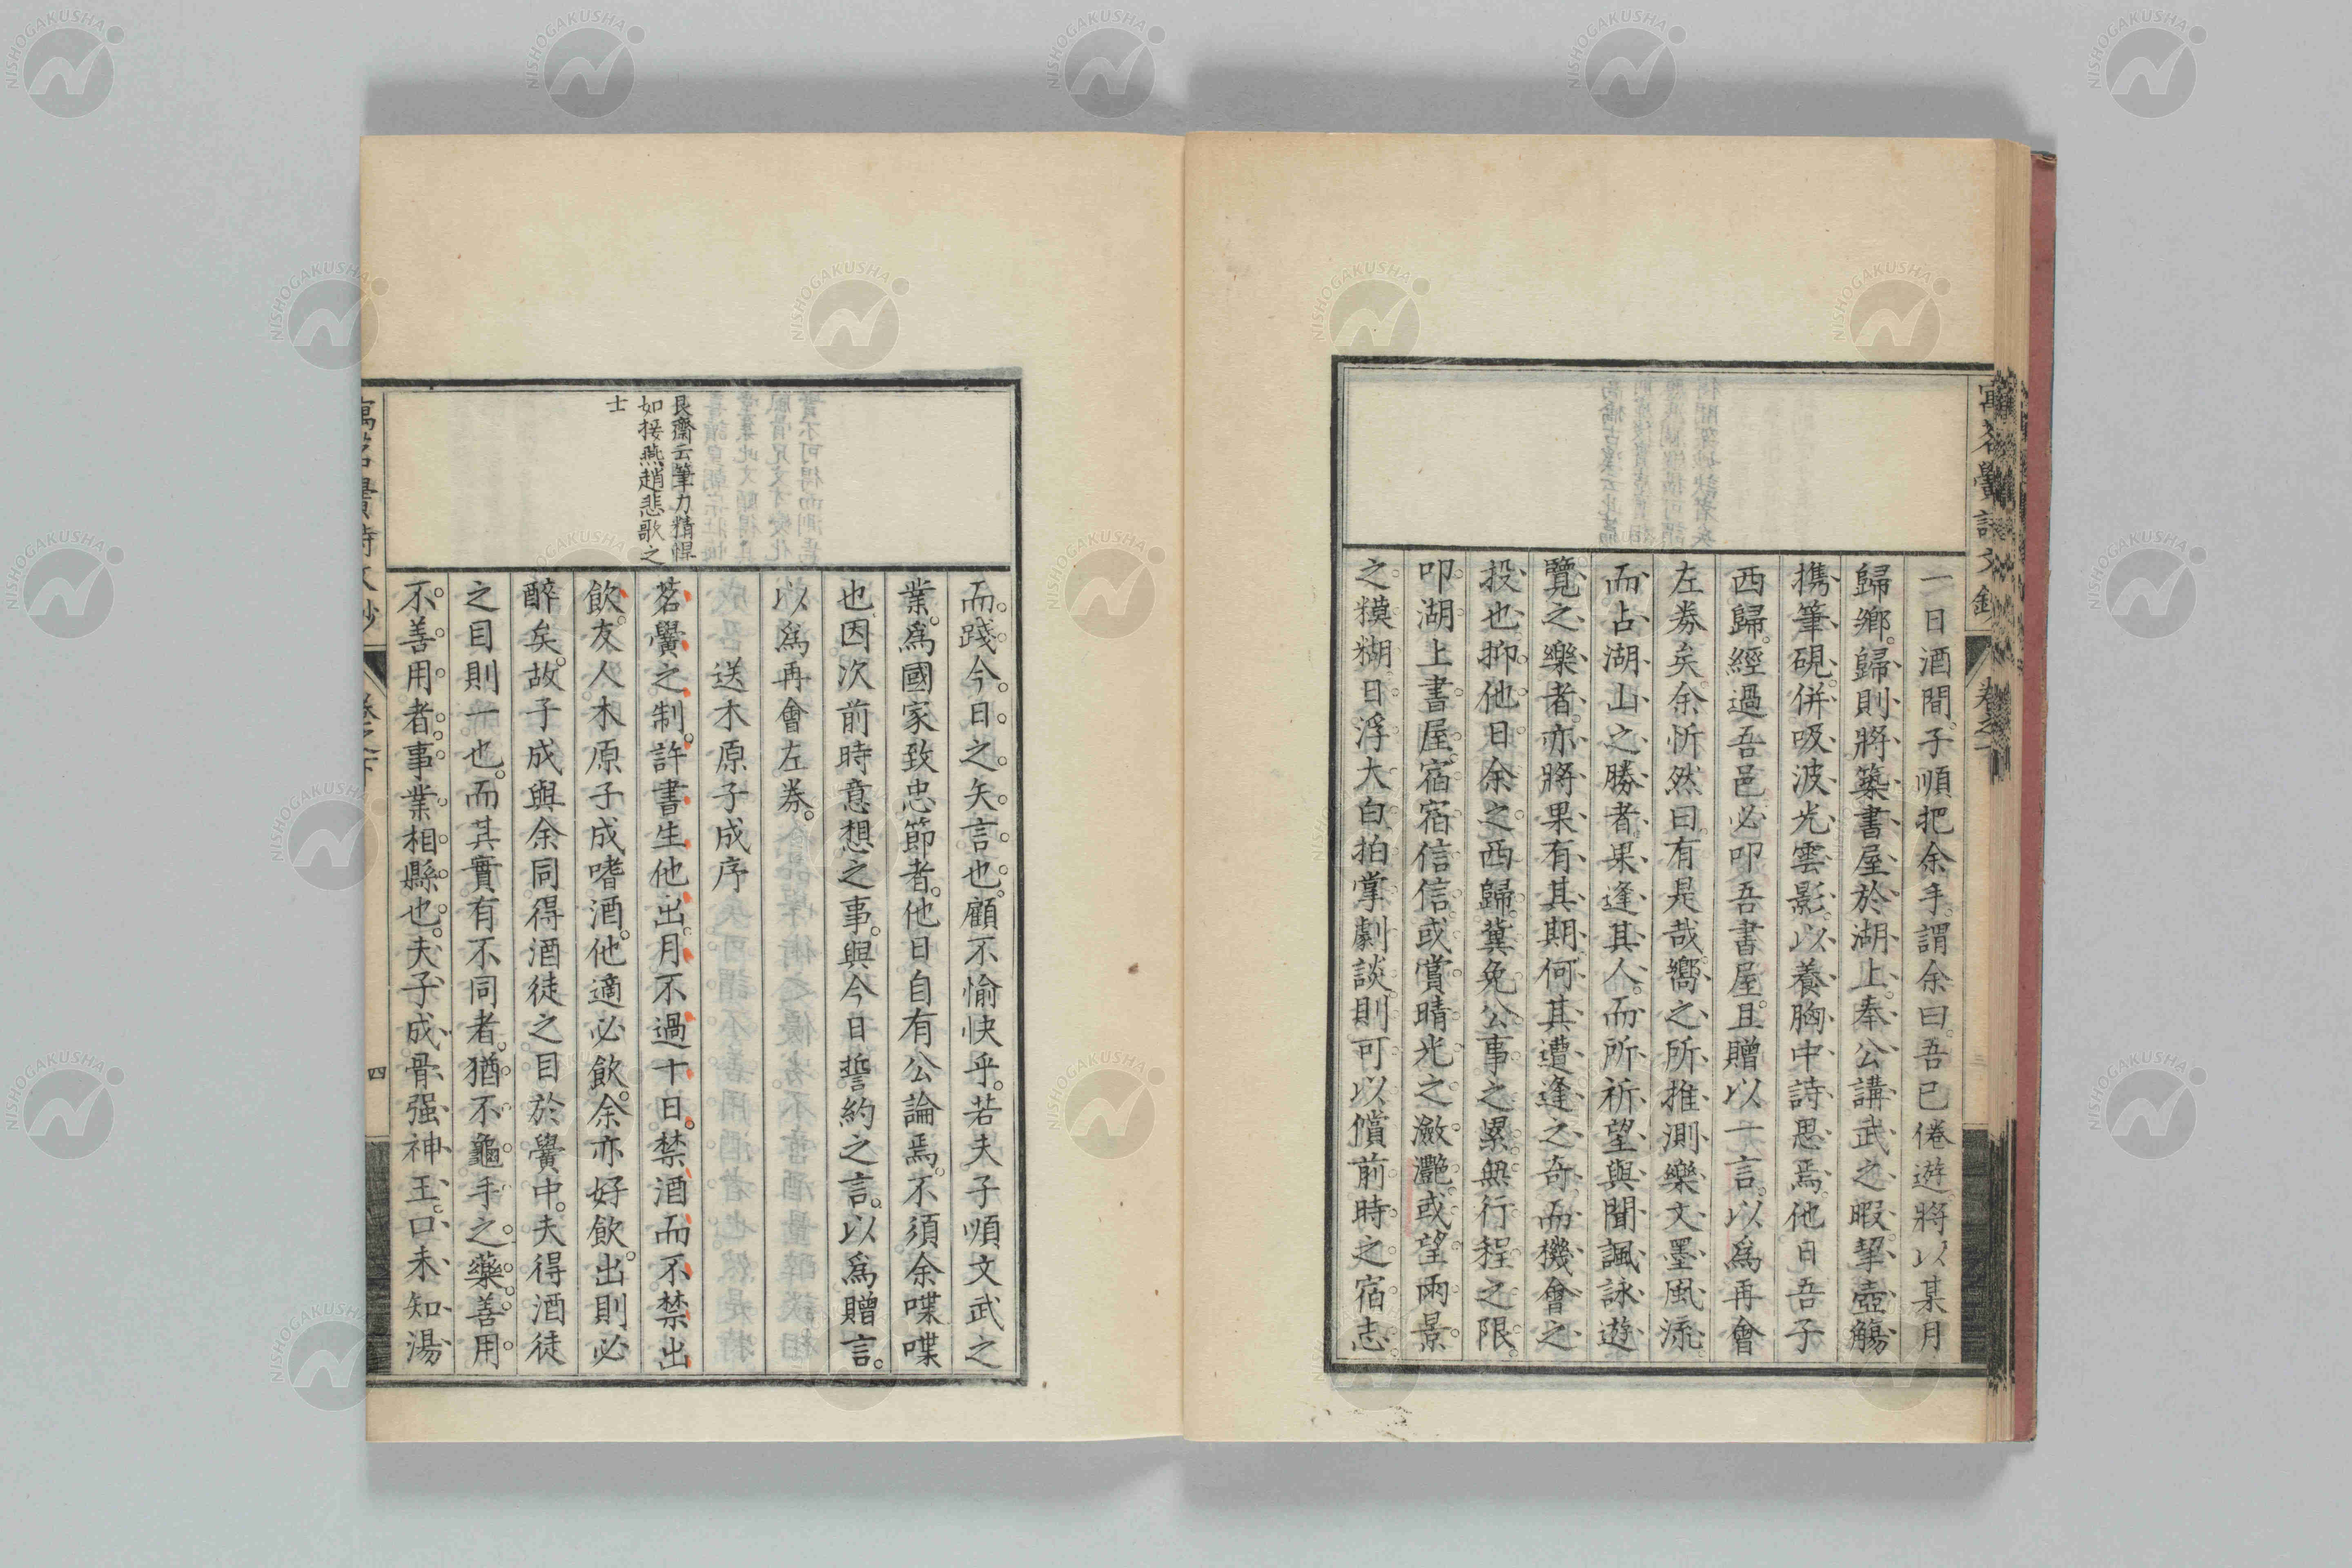 一日酒間。子順把余手。謂余曰。吾已倦遊。將以某月
歸鄉。歸則將築書屋於湖上。奉公講武之暇。挈壺觴
携筆硯。併吸波光雲影。以養胸中詩思焉。他日吾子
西歸。經過吾邑必叩吾書屋。且贈以一言。以爲再會
左券矣余忻然曰有是哉。嚮之所推測樂文墨風流。
而占湖山之勝者。果逢其人。而所祈望與聞諷詠遊
覽之樂者。亦將果有其期。何其遭逢之奇。而機會之
投也。抑他日余之西歸。冀免公事之累。無行程之限。
叩湖上書屋。宿宿信信。或賞晴光之瀲灩。或望雨景
之糢糊。日浮大白拍掌劇談。則可以償前時之宿志。
而踐今日之矢言也。顧不愉快乎。若夫子順文武之
業。爲國家致忠節者。他日自有公論焉。不須余喋喋
也。因次前時意想之事。與今日誓約之言。以爲贈言。
以爲再會左券。
送木原子成序
茗黌之制。許書生他出。月不過十日。禁酒而不禁出
飲。友人木原子成嗜酒。他適必飲。余亦好飲。出則必
醉矣。故子成與余同得酒徒之目於黌中。夫得酒徒
之目則一也。而其實有不同者。猶不龜手之藥。善用
不善用者。事業相縣也。夫子成骨强神王。口未知湯
艮齋云筆力精悍
如接燕趙悲歌之
士
四
NISHOGAKUSHA